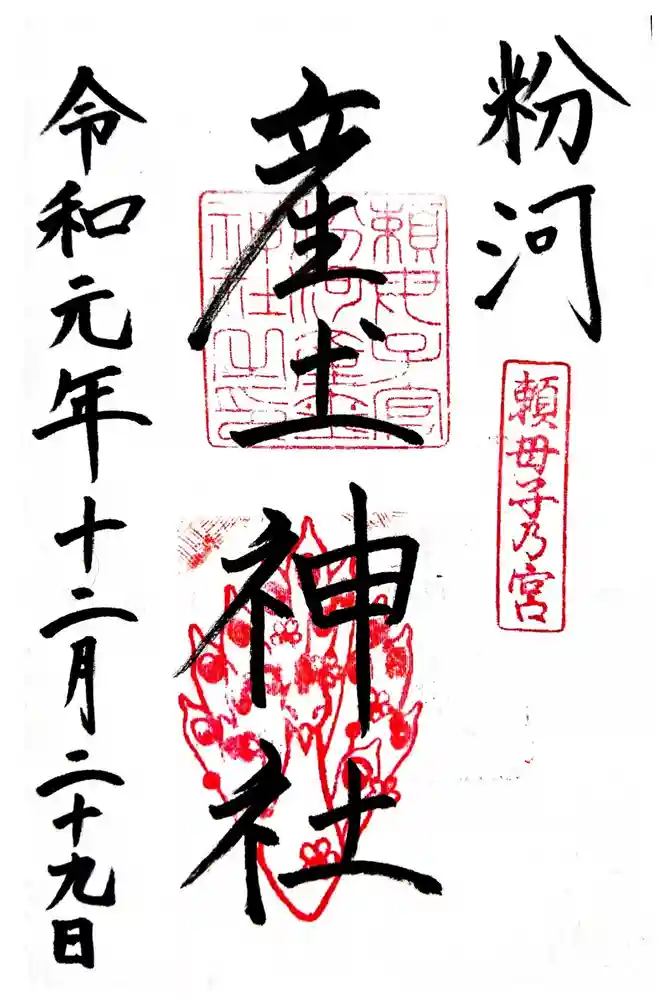 粉河
頼母子乃宮
産土神社
頼母子宮
粉河産土
神社之印
令和元年十二月二十九日